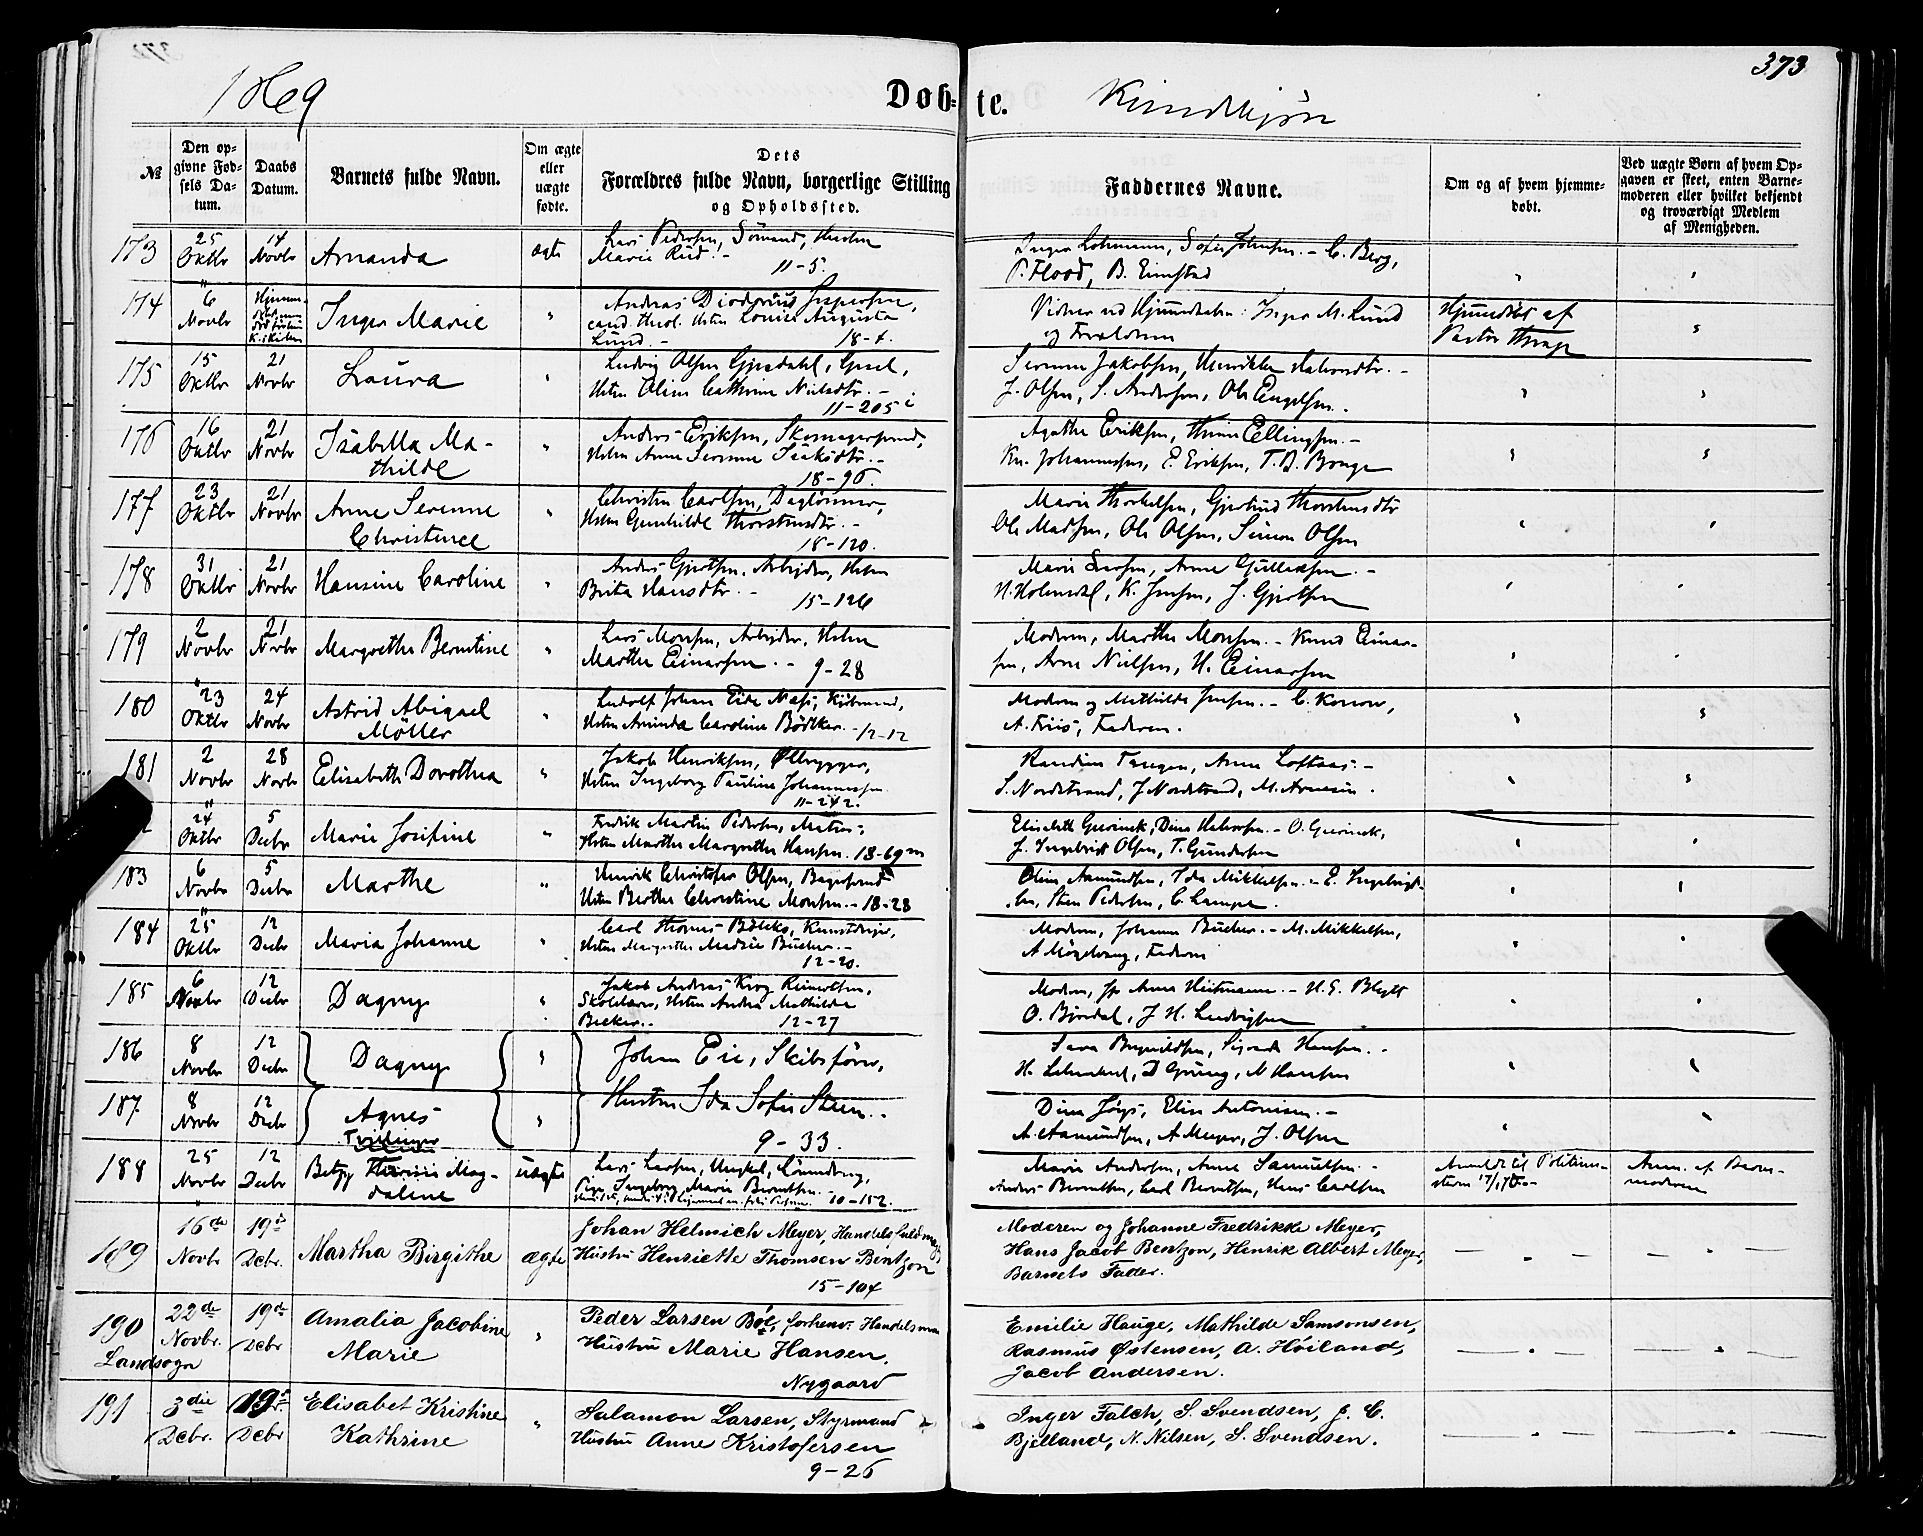 373
1869
Døb-te.
Kvindekjøn
№
Den opgivne Fødsels Datum.
Daabs Datum.
Barnets fulde Navn.
Om ægte eller uægte fødte.
Dets Forældres fulde Navn, borgerlige Stilling og Opholdssted.
Faddernes Navne.
Om og af hvem hjemmedøbt.
Ved uægte Børn af hvem Opgaven er skeet, enten Barnemoderen eller hvilket bekjendt og troværdigt Medlem af Menigheden.
173 25 Oktbr 14 Novbr Amanda ægte
Lars Pedersen, Sömand, Hustru
Marie 11-5.
Inger Lohmann, Sofie Johnsen. - C. Berg,
P. Flood, B. Eimstad
174 6 Novbr Inger Marie "
Andreas Jespersen,
cand. theol. Hstru Louise Augusta
Lund. - 18-4.
Vidner ved Hjemmedaaben: Inger M. Lund
og Forældrene
Hjemmedøbt af
Pastor
175 15 Oktbr 21 Novbr Laura "
Ludvig Olsen Gjesdahl,
Hstru Oline Cathrine Nielsdtr. -
11-205
Serine Jakobsen, Henrikke Halvorsdtr. -
J. Olsen, S. Andersen, Ole Engelsen.
176 16 Oktbr 21 Novbr Isabella Ma-
thilde "
Anders Eriksen, Skomagersvend,
Hstru Anne Serine Isaksdtr. -
18-96.
Agathe Eriksen, Ellingsen. -
Kn. Johannessen, E. Eriksen, T. B. Bonge
177 23 Oktbr 21 Novbr Anne Serine
Christence "
Christen Carlsen, Daglönner,
Hstru Gunhilde Thorstensdtr. -
18-120.
Marie Thorkelsen, Gjertrud Thorstensdtr
Ole Madsen, Ole Olsen, Simon Olsen
178 31 Oktbr 21 Novbr Hansine Caroline "
Anders Gjertsen, Arbejder, Hstru
Brita Hansdtr. - 15-126
Marie Larsen, Anne Gulleksen. -
H. Holmedal, K. Jensen, J. Gjertsen
179 2 Novbr 21 Novbr Margrethe Berntine "
Lars Monsen, Arbejder, Hstru
Marthe Einarsen. - 9-28
Moderen, Marthe Monsen. - Knud Einar-
sen, Arne Nielsen, H. Einarsen
180 23 Oktbr 24 Novbr Astrid Abigael
Möller "
Ludolf Johan Eide Næss, Kjöbmand,
Hstru Aminda Caroline Bödtker. - 12-12
Moderen og Mathilde Jensen. - C. Konow,
A. Friis, Faderen.
181 2 Novbr 28 Novbr Elisabeth Dorothea "
Jakob Henriksen, Ølbrygger,
Hstru Ingeborg Pauline Johannessen
11-242.
Randine Tangen, Anne Loftaas. -
S. Nordstrand, J. Nordstrand, M. Arnesen.
24 Oktbr 5 Decbr Marie Josefine "
Fredrik Martin Pedersen, Matros,
Hstru Marthe Margrethe Hansen. 18-69 m
Elisabeth Gurinck, Dina Halvorsen. - O. Gurinck,
J. Ingebrigt Olsen, T. Gundersen
183 6 Novbr 5 Decbr Marthe "
Henrik Christofer Olsen, Bagersvend
Hstru Berthe Christine Monsen. - 18-28
Oline Aamundsen, Ida Mikkelsen. - E. Ingebrigt-
sen, Sten Pedersen, C. Lampe.
184 25 Oktbr 12 Decbr Maria Johanne "
Carl Thomas Kunstdrejer,
Hstru Margrethe Madsie Bucher. -
12-20.
Moderen, Johanne Bucher. - M. Mikkelsen,
A. Faderen
185 6 Novbr 12 Decbr Dagny "
Jakob Andreas Krog
Skolelærer, Hstru Andrea Mathilda
Becker. - 12-27
Moderen, Anna Heitmann. - H. G. Blytt
O. Bjørdal, J. H. Ludvigsen
186 8 Novbr 12 Decbr Dagny "
Johan Eie, Skibsförer,
Hustru Ida Sofie Steen. -
9-33.
Sara Hansen. -
H. Lehmkuhl, D. Grung, N. Hansen
187 8 Novbr 12 Decbr Agnes
Tvillinger "
Dina Elise Antonisen. -
A. Aamundsen, A. Meyer, J. Olsen
188 25 Novbr 12 Decbr Betzy Mag-
dalene uægte
Lars Larsen, Ungkarl,
Pige Ingeborg Marie Berntsen. -
10-152.
Marie Andersen, Anne Samuelsen. -
Anders Berntsen, Carl Berntsen, Hans Carlsen
Anmeldt til Politime-
steren
Anm. af Barne-
moderen
189 16de Novbr 19de Dcbr. Martha Birgithe ægte
Johan Helmich Meyer, Handelsfuldmægt
Hustru Henriette Thomsen Bentzon
15-104
Moderen og Johanne Fredrikke Meyer,
Hans Jacob Bentzon, Henrik Albert Meyer,
Barnets Fader.
190 22de Novbr. 19de Dcbr Amalia Jacobine
Marie "
Landsogn
Peder Larsen Böe, forhenv. Handelsman
Hustru Marie Hansen.
Nygaard
Emilie Hauge, Mathilde Samsonsen,
Rasmus Østensen, A. Höiland,
Jacob Andersen.
191 3die Dcbr. 19de Dcbr Elisabet Kristine
Kathrine "
Salamon Larsen, Styrmand
Hustru Anne Kristofersen
9-26
Inger Falch, S. Svendsen, J. C.
Bjelland, N. Nilsen, S. Svendsen.